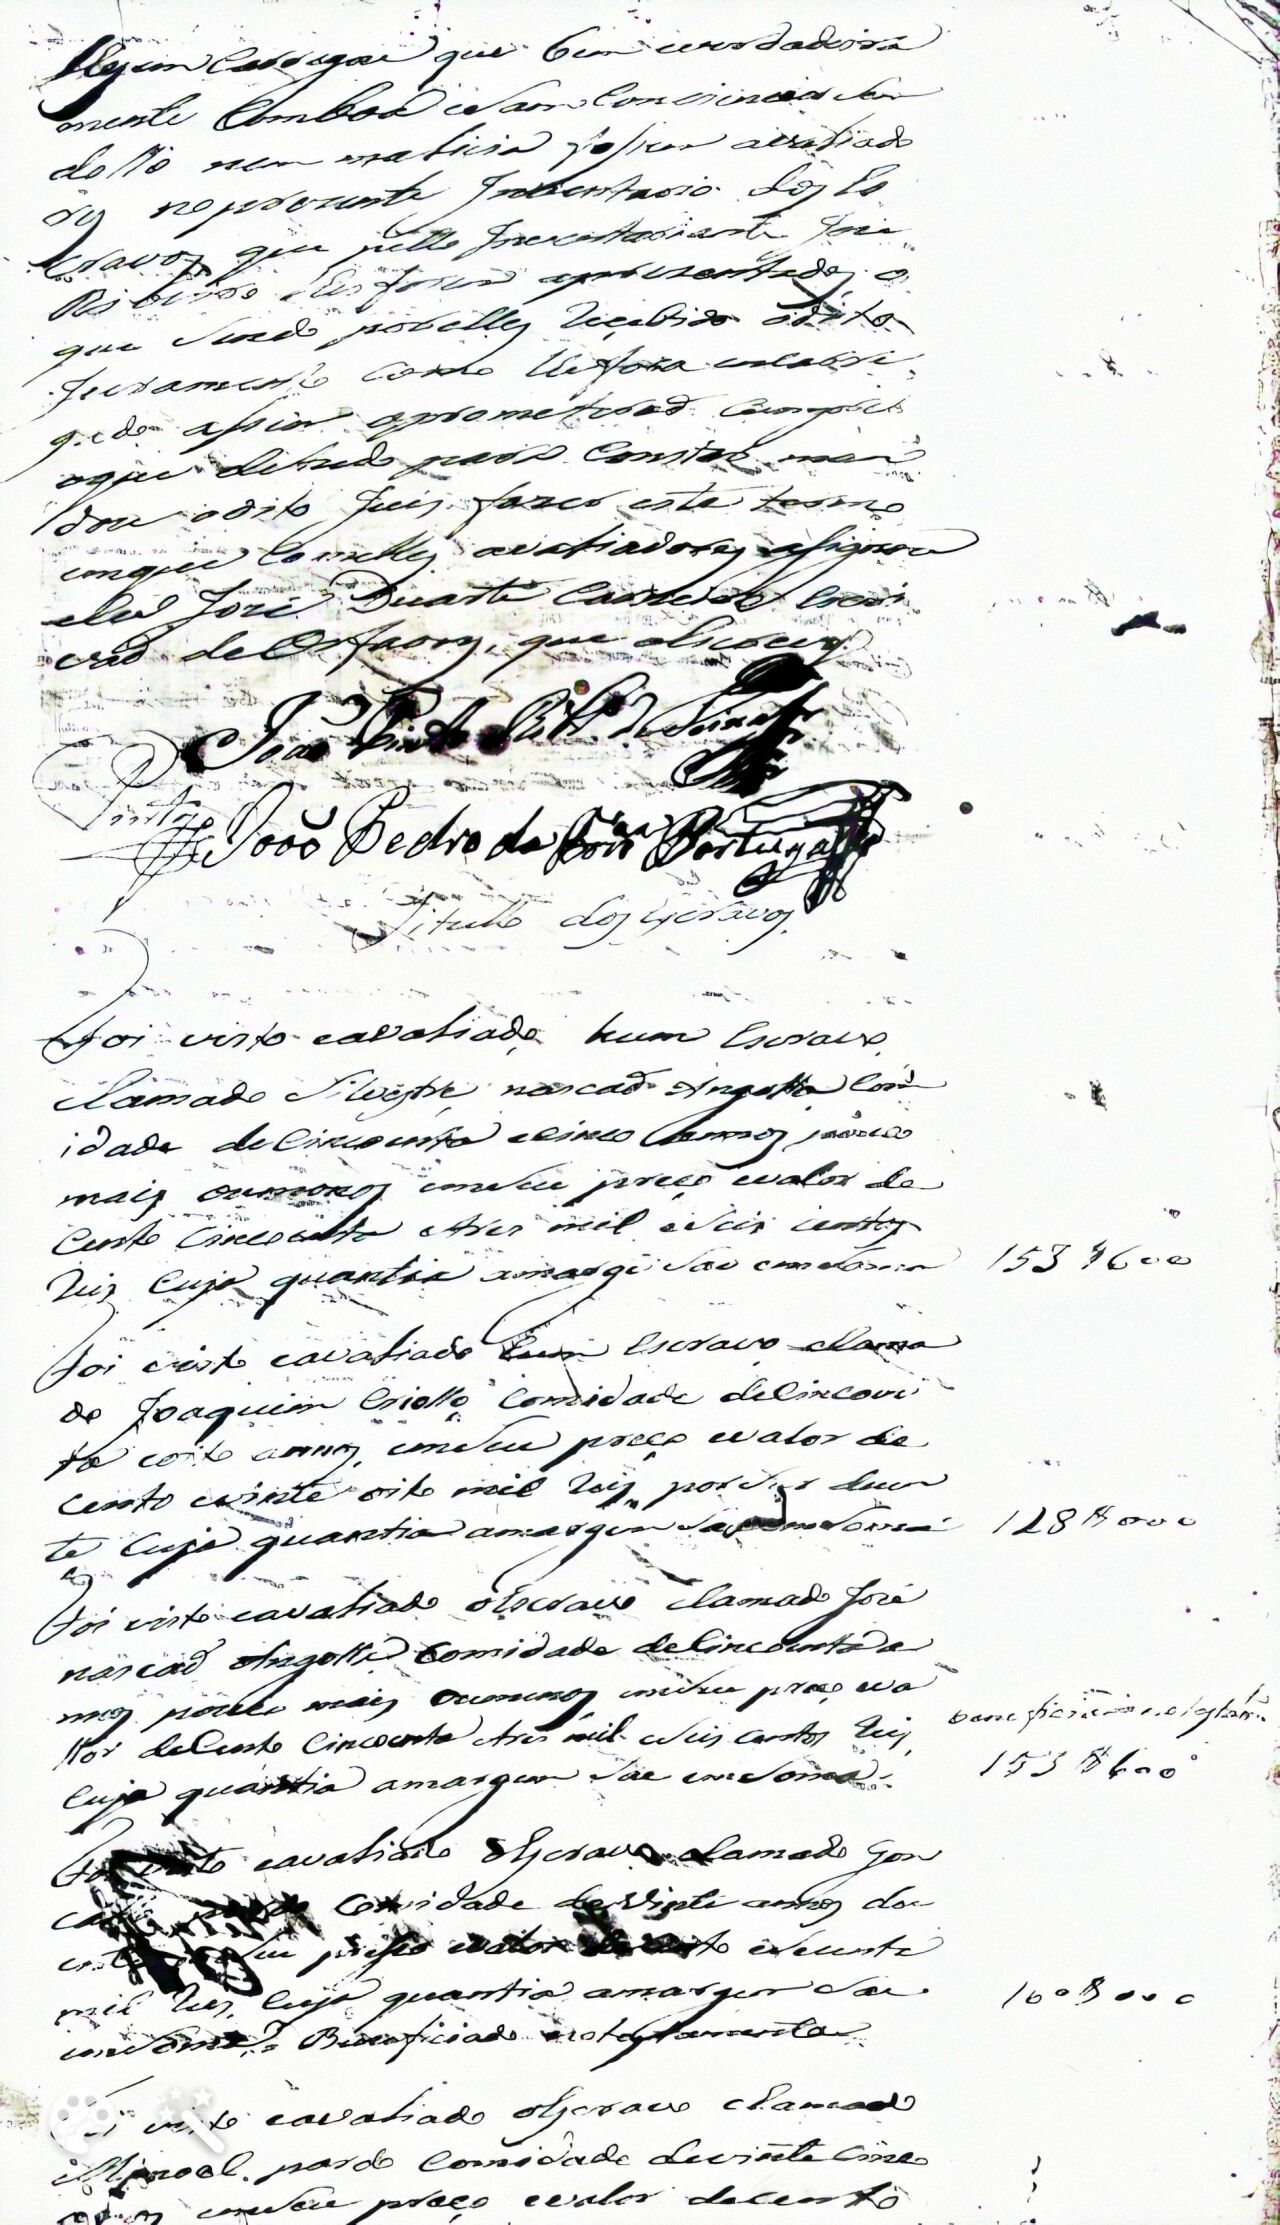 que bem verdadeira
mente Com boa e sam Consciencia sem
dollo nem malicia fossem avaliado
res no prezente Inventario dos Es
cravos que pello Inventariante Joze
Ribeiro lhes forem aprezentados o
que sendo por elles recebido o dito
Juramento como lhe fora
assim o prometerão Cumprir
oque de tudo para Constar man
dou odito Juis fazer este termo
emque Com elles avaliadores asignou
e Eu Joze Duarte Carneiro Escri
vão de Orfaons, que o Escrevy
João Pinto
Pinto
João Pedro da Portugal
Titullo dos Escravos
Foi visto e avaliado hum Escravo
chamado Silvestre nascão Angolla Com
idade de Cincoenta e Cinco annos pouco
mais oumenos em seu preço e valor de
Cento Cincoenta e tres mil e seis centos
reis Cuja quantia amarge sae em soma 153$600
Foi visto e avaliado hum Escravo chama
do Joaquim Criollo Com idade de Cincoen
ta e oito annos em seu preço e valor de
Cento e vinte oito mil reis por ser doen
te Cuja quantia a margem sae em soma 128$000
Foi visto e avaliado o Escravo chamado Joze
nascão Angolla Com idade de Cincoenta a
nnos pouco mais oumenos em seu preço e va
llor de Cento Cincoenta e tres mil e seis centos reis
Cuja quantia a margem sae em soma 153$600
Foi visto e avaliado o Escravo chamado Gon
Com idade de Vinte annos do
seu preço e valor de cento e secenta
mil reis Cuja quantia a margem sae 160$000
em soma Beneficiado no testamento
Foi visto e avaliado o Escravo chamado
Manoel pardo Com idade de vinte Cinco
annos em seu preço e valor de cento